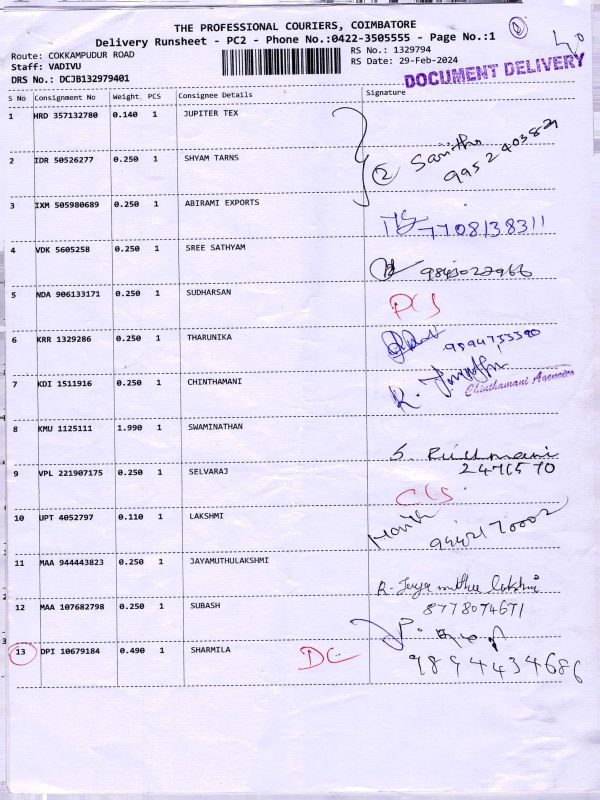 THE PROFESSIONAL COURIERS, COIMBATORE
Delivery Runsheet - PC2 - Phone No.:0422-3505555 - Page No.:1
Route: COKKAMPUDUR ROAD
RS No.: 1329794
Staff: VADIVU
RS Date: 29-Feb-2024
DRS No.: DCJB132979401
DOCUMENT DELIVERY
S No Consignment No Weight PCS Consignee Details Signature
1 HRD 357132780 0.140 1 JUPITER TEX
2 IDR 50526277 0.250 1 SHYAM TARNS
3 IXM 505980689 0.250 1 ABIRAMI EXPORTS
7708138311
4 VDK 5605258 0.250 1 SREE SATHYAM
9843022966
5 NDA 906133171 0.250 1 SUDHARSAN
6 KRR 1329286 0.250 1 THARUNIKA
7 KDI 1511916 0.250 1 CHINTHAMANI
8 KMU 1125111 1.990 1 SWAMINATHAN
2471570
9 VPL 221907175 0.250 1 SELVARAJ
10 UPT 4052797 0.110 1 LAKSHMI
11 MAA 944443823 0.250 1 JAYAMUTHULAKSHMI
12 MAA 107682798 0.250 1 SUBASH
8778074671
13 DPI 10679184 0.490 1 SHARMILA DC
9894434686